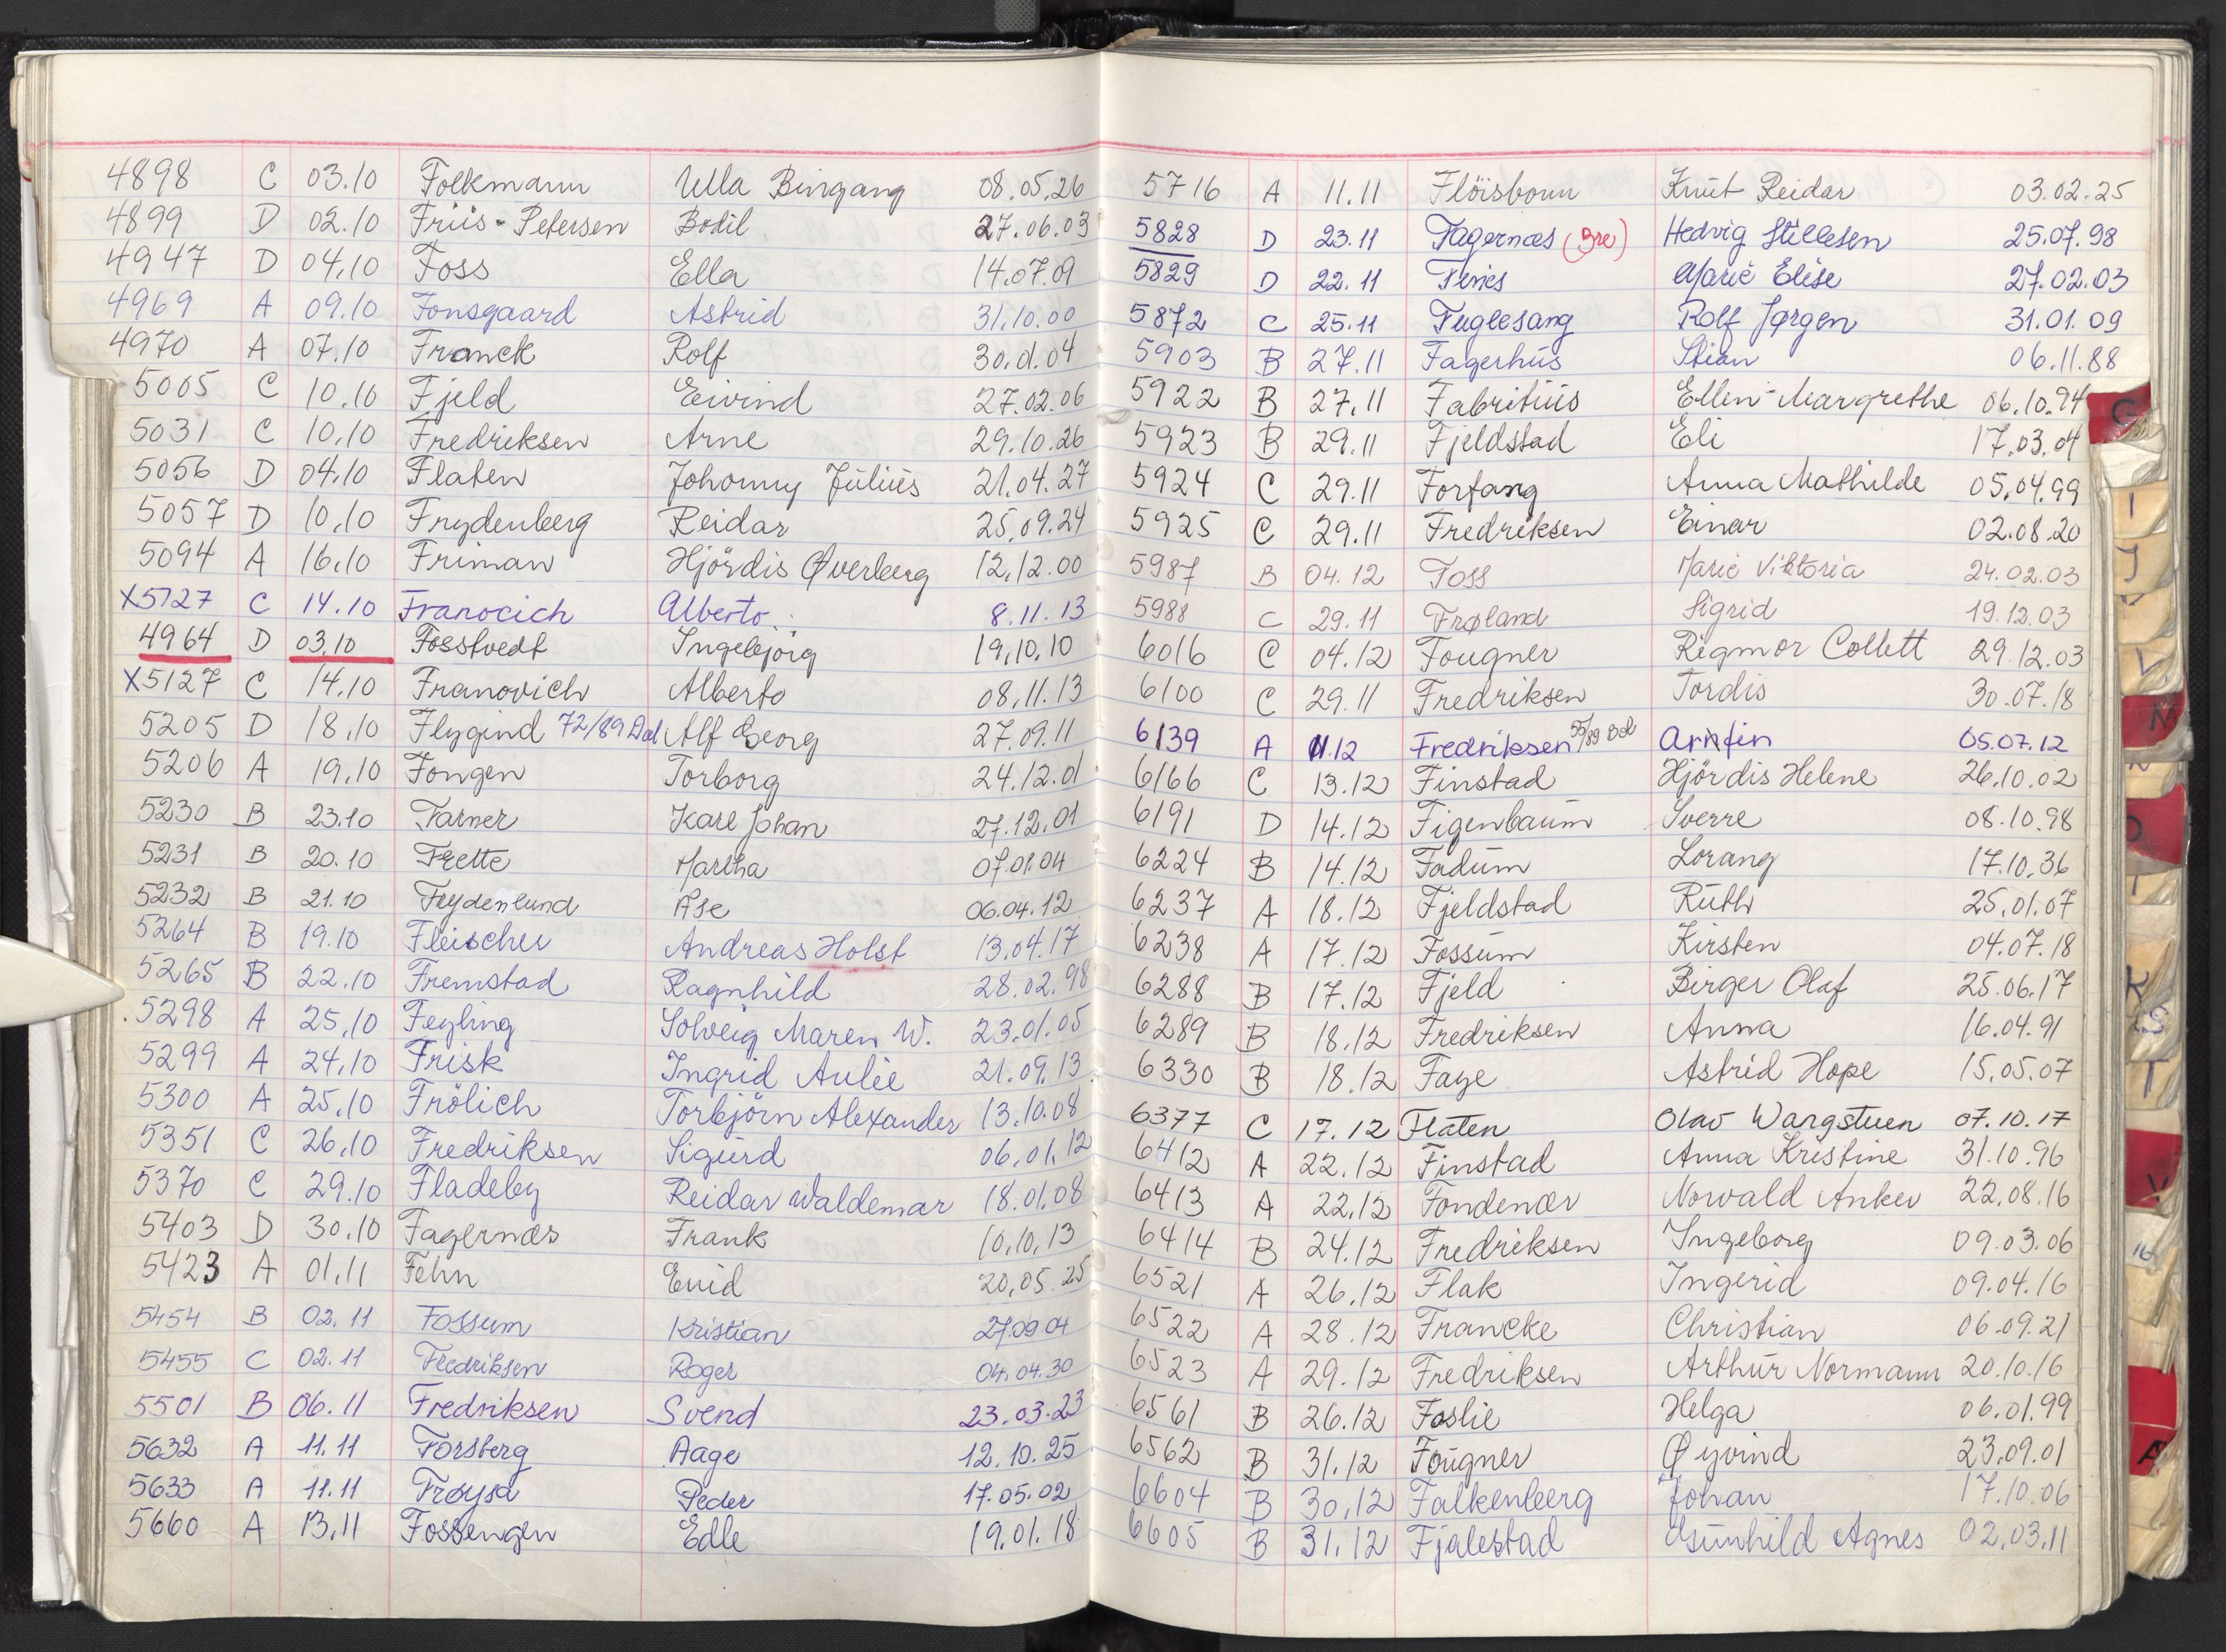 4898 C 03.10 Folkmann Ulla Bingang 08.05.26
4899 D 02.10 Friis-Petersen Bodil 27.06.03
4947 D 04.10 Foss Ella 14.07.09
4969 A 09.10 Fonsgaard Astrid 31.10.00
4970 A 07.10 Franck Rolf 30.01.04
5005 C 10.10 Fjeld Eivind 27.02.06
5031 C 10.10 Fredriksen Arne 29.10.26
5056 D 04.10 Flaten Johonny Julius 21.04.27
5057 D 10.10 Frydenberg Reidar 25.09.24
5094 A 16.10 Friman Hjördis Øverberg 12.12.00
X5127 C 14.10 Franocich Alberto 8.11.13
4964 D 03.10 Fosstvedt Ingebjörg 19.10.10
X5127 C 14.10 Franovich Alberto 08.11.13
5205 D 18.10 Flygind 72/89 Dal Alf Georg 27.09.11
5206 A 19.10 Fongen Torborg 24.12.01
5230 B 23.10 Farner Karl Johan 27.12.01
5231 B 20.10 Frette Martha 07.01.04
5232 B 21.10 Frydenlund Åse 06.04.12
5264 B 19.10 Fleischer Andreas Holst 13.04.17
5265 B 22.10 Fremstad Ragnhild 28.02.98
5298 A 25.10 Feyling Solveig Maren W. 23.01.05
5299 A 24.10 Frisk Ingrid Aulie 21.09.13
5300 A 25.10 Frölich Torbjörn Alexander 13.10.08
5351 C 26.10 Fredriksen Sigurd 06.01.12
5370 C 29.10 Fladeby Reidar Waldemar 18.01.08
5403 D 30.10 Fagernæs Frank 10.10.13
5423 A 01.11 Fehn Enid 20.05.25
5454 B 02.11 Fossum Kristian 27.09.04
5455 C 02.11 Fredriksen Roger 04.04.30
5501 B 06.11 Fredriksen Svend 23.03.23
5632 A 11.11 Forsberg Aage 12.10.25
5633 A 11.11 Frøysa Peder 17.05.02
5660 A 13.11 Fossengen Edle 19.01.18
5716 A 11.11 Flöisbonn Knut Reidar 03.02.25
5828 D 23.11 Fagernæs (Bre) Hedvig Stillesen 25.07.98
5829 D 22.11 Marie Elise 27.02.03
5872 C 25.11 Fuglesang Rolf Jørgen 31.01.09
5903 B 27.11 Fagerhus Stian 06.11.88
5922 B 27.11 Fabritius Ellen-Margrethe 06.10.94
5923 B 29.11 Fjeldstad Eli 17.03.04
5924 C 29.11 Forfang Anna Mathilde 05.04.99
5925 C 29.11 Fredriksen Einar 02.08.20
5987 B 04.12 Foss Marie Viktoria 24.02.03
5988 C 29.11 Frøland Sigrid 19.12.03
6016 C 04.12 Fougner Rigmor Collett 29.12.03
6100 C 29.11 Fredriksen Tordis 30.07.18
6139 A 11.12 Fredriksen 55/89 Dal Arnfin 05.07.12
6166 C 13.12 Finstad Hjördis Helene 26.10.02
6191 D 14.12 Figenbaum Sverre 08.10.98
6224 B 14.12 Fadum Lorang 17.10.36
6237 A 18.12 Fjeldstad Ruth 25.01.07
6238 A 17.12 Fossum Kirsten 04.07.18
6288 B 17.12 Fjeld Birger Olaf 25.06.17
6289 B 18.12 Fredriksen Anna 16.04.91
6330 B 18.12 Faye Astrid Hope 15.05.07
6377 C 17.12 Flaten Olav Wargstuen 07.10.17
6412 A 22.12 Finstad Anna Kristine 31.10.96
6413 A 22.12 Fondenær Norvald Anker 22.08.16
6414 B 24.12 Fredriksen Ingeborg 09.03.06
6521 A 26.12 Flak Ingerid 09.04.16
6522 A 28.12 Francke Christian 06.09.21
6523 A 29.12 Fredriksen Arthur Normann 20.10.16
6561 B 26.12 Foslie Helga 06.01.99
6562 B 31.12 Fougner Øyvind 23.09.01
6604 B 30.12 Falkenberg Johan 17.10.06
6605 B 31.12 Fjalestad Gunhild Agnes 02.03.11
G
I
J
V
M
O
K
S
T
V
16
A